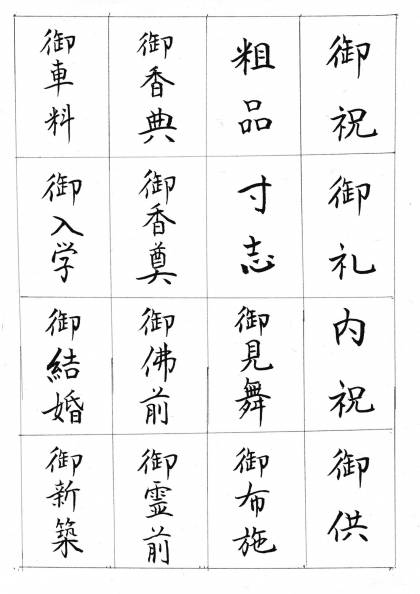 御祝
御礼
内祝
御供
粗品
寸志
御見舞
御布施
御香典
御香奠
御佛前
御霊前
御車料
御入学
御結婚
御新築